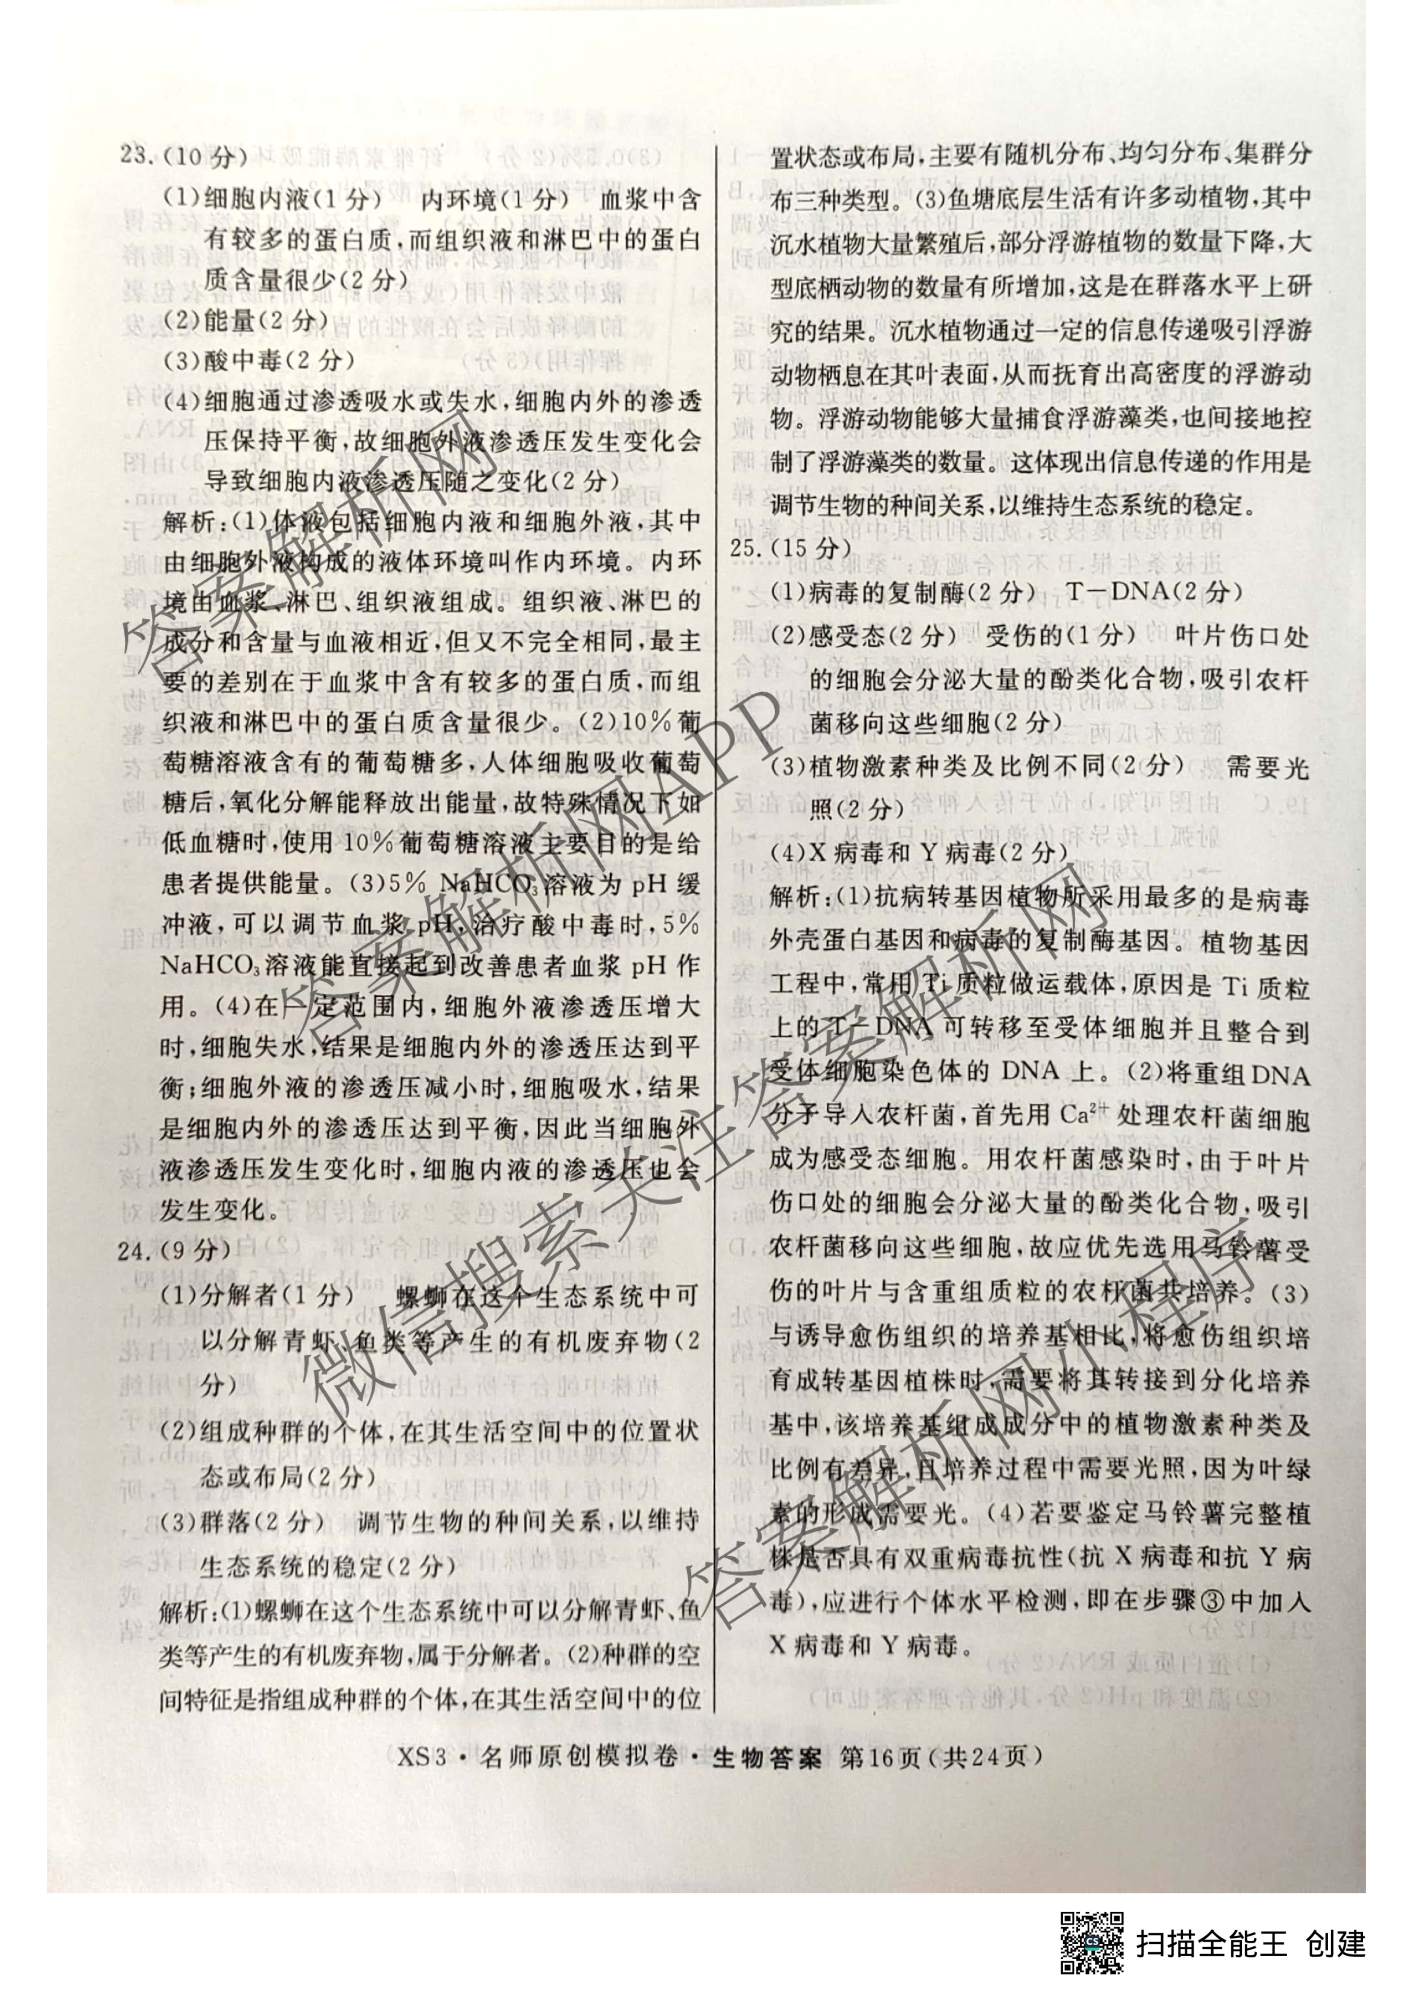 23.(10分)
(1)细胞内液(1分) 内环境(1分) 血浆中含
有较多的蛋白质,而组织液和淋巴中的蛋白
质含量很少(2分)
(2)能量(2分)
(3)酸中毒(2分)
(4)细胞通过渗透吸水或失水,细胞内外的渗透
压保持平衡,故细胞外液渗透压发生变化会
导致细胞内液渗透压随之变化(2分)
解析:(1)体液包括细胞内液和细胞外液,其中
由细胞外液构成的液体环境叫作内环境。内环
境由血浆、淋巴、组织液组成。组织液、淋巴的
成分和含量与血液相近,但又不完全相同,最主
要的差别在于血浆中含有较多的蛋白质,而组
织液和淋巴中的蛋白质含量很少。(2)10%葡
萄糖溶液含有的葡萄糖多,人体细胞吸收葡萄
糖后,氧化分解能释放出能量,故特殊情况下如
低血糖时,使用10%葡萄糖溶液主要目的是给
患者提供能量。(3)5% NaHCO₃溶液为pH缓
冲液,可以调节血浆pH,治疗酸中毒时,5%
NaHCO₃溶液能直接起到改善患者血浆pH作
用。(4)在一定范围内,细胞外液渗透压增大
时,细胞失水,结果是细胞内外的渗透压达到平
衡;细胞外液的渗透压减小时,细胞吸水,结果
是细胞内外的渗透压达到平衡,因此当细胞外
液渗透压发生变化时,细胞内液的渗透压也会
发生变化。
24.(9分)
(1)分解者(1分) 螺蛳在这个生态系统中可
以分解青虾、鱼类等产生的有机废弃物(2
分)
(2)组成种群的个体,在其生活空间中的位置状
态或布局(2分)
(3)群落(2分) 调节生物的种间关系,以维持
生态系统的稳定(2分)
解析:(1)螺蛳在这个生态系统中可以分解青虾、鱼
类等产生的有机废弃物,属于分解者。(2)种群的空
间特征是指组成种群的个体,在其生活空间中的位
置状态或布局,主要有随机分布、均匀分布、集群分
布三种类型。(3)鱼塘底层生活有许多动植物,其中
沉水植物大量繁殖后,部分浮游植物的数量下降,大
型底栖动物的数量有所增加,这是在群落水平上研
究的结果。沉水植物通过一定的信息传递吸引浮游
动物栖息在其叶表面,从而抚育出高密度的浮游动
物。浮游动物能够大量捕食浮游藻类,也间接地控
制了浮游藻类的数量。这体现出信息传递的作用是
调节生物的种间关系,以维持生态系统的稳定。
25.(15分)
(1)病毒的复制酶(2分) T-DNA(2分)
(2)感受态(2分) 受伤的(1分) 叶片伤口处
的细胞会分泌大量的酚类化合物,吸引农杆
菌移向这些细胞(2分)
(3)植物激素种类及比例不同(2分) 需要光
照(2分)
(4)X病毒和Y病毒(2分)
解析:(1)抗病转基因植物所采用最多的是病毒
外壳蛋白基因和病毒的复制酶基因。植物基因
工程中,常用Ti质粒做运载体,原因是Ti质粒
上的T-DNA可转移至受体细胞并且整合到
受体细胞染色体的DNA上。(2)将重组DNA
分子导入农杆菌,首先用Ca²⁺处理农杆菌细胞
成为感受态细胞。用农杆菌感染时,由于叶片
伤口处的细胞会分泌大量的酚类化合物,吸引
农杆菌移向这些细胞,故应优先选用马铃薯受
伤的叶片与含重组质粒的农杆菌共培养。(3)
与诱导愈伤组织的培养基相比,将愈伤组织培
育成转基因植株时,需要将其转接到分化培养
基中,该培养基组成成分中的植物激素种类及
比例有差异,且培养过程中需要光照,因为叶绿
素的形成需要光。(4)若要鉴定马铃薯完整植
株是否具有双重病毒抗性(抗X病毒和抗Y病
毒),应进行个体水平检测,即在步骤③中加入
X病毒和Y病毒。
XS3·名师原创模拟卷·生物答案 第16页(共24页)
答案解析网
答案解析网APP
微信搜索关注答案解析网
答案解析网小程序
扫描全能王 创建